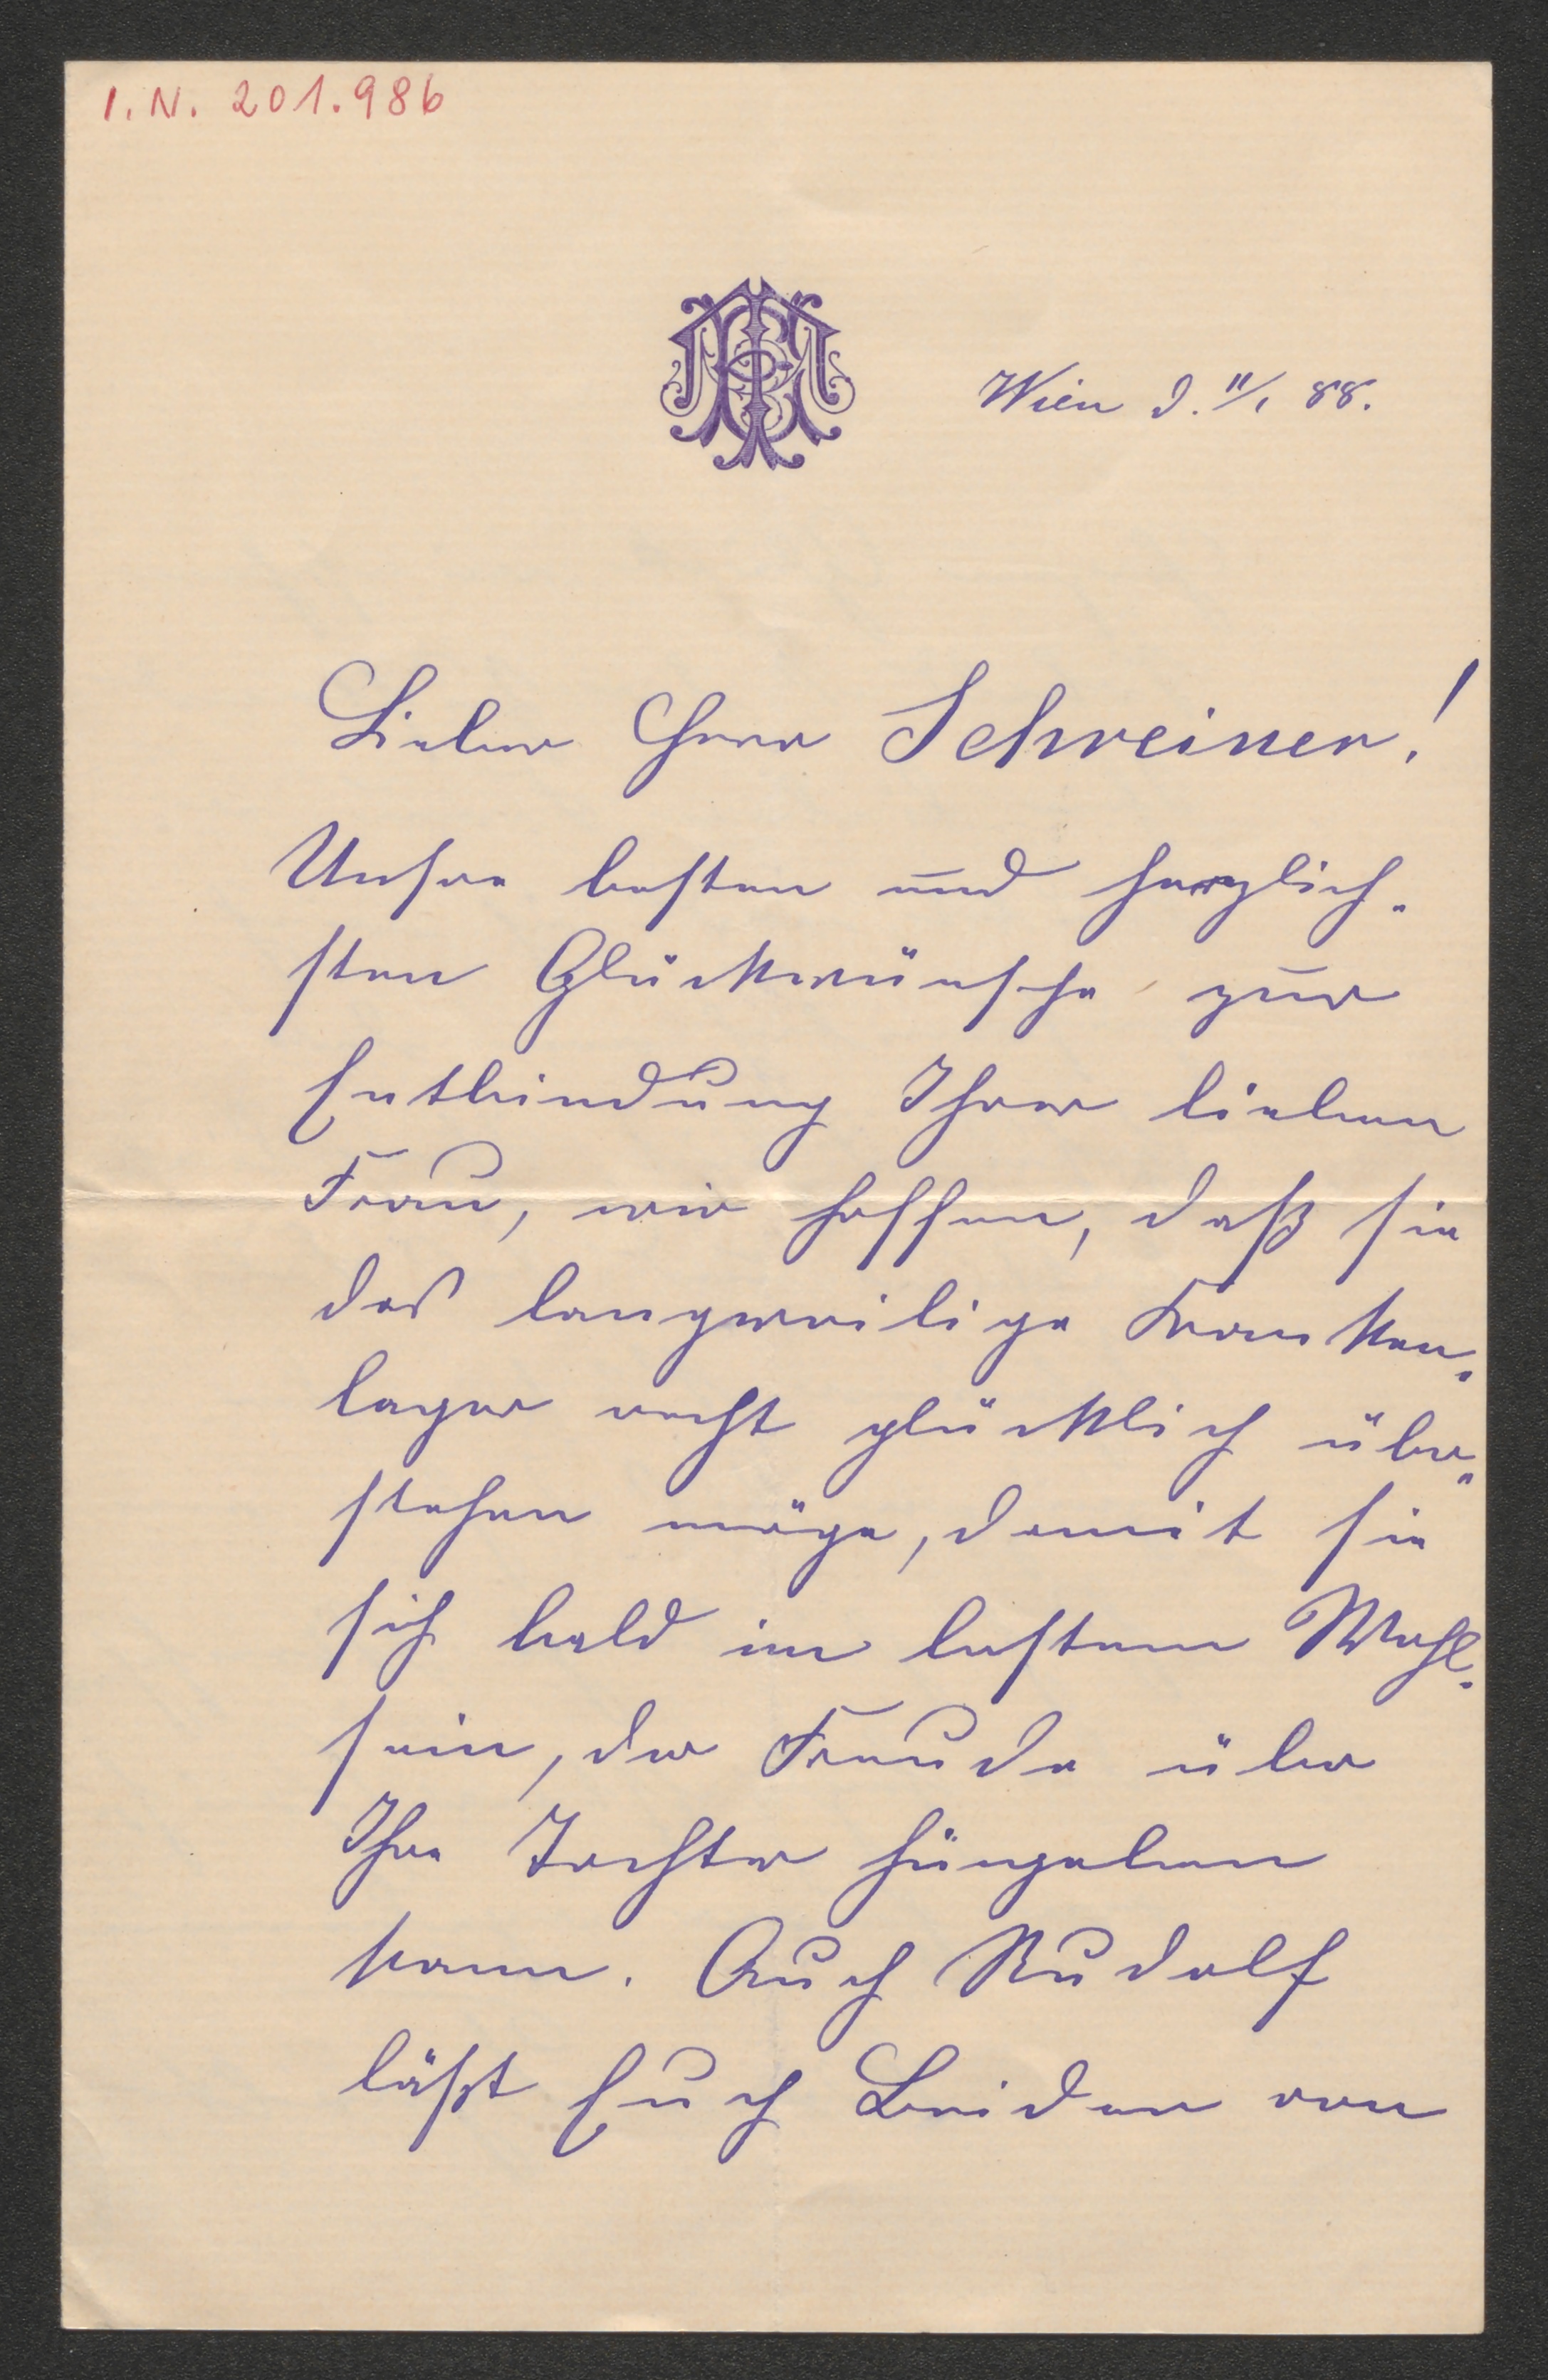 I.N. 201.986
Wien d. 11/1 88.
Lieber Herr Schreiner!
Unsre besten und herzlich-
sten Glückwünsche zur
Entbindung Ihrer lieben
Frau, wir hoffen, daß sie
das langweilige Kranken-
lager recht glücklich über-
stehen möge, damit sie
sich bald im bestem Wohl-
sein, der Freude über
Ihre Tochter hingeben
kann. Auch Rudolf
läßt Euch Beiden von